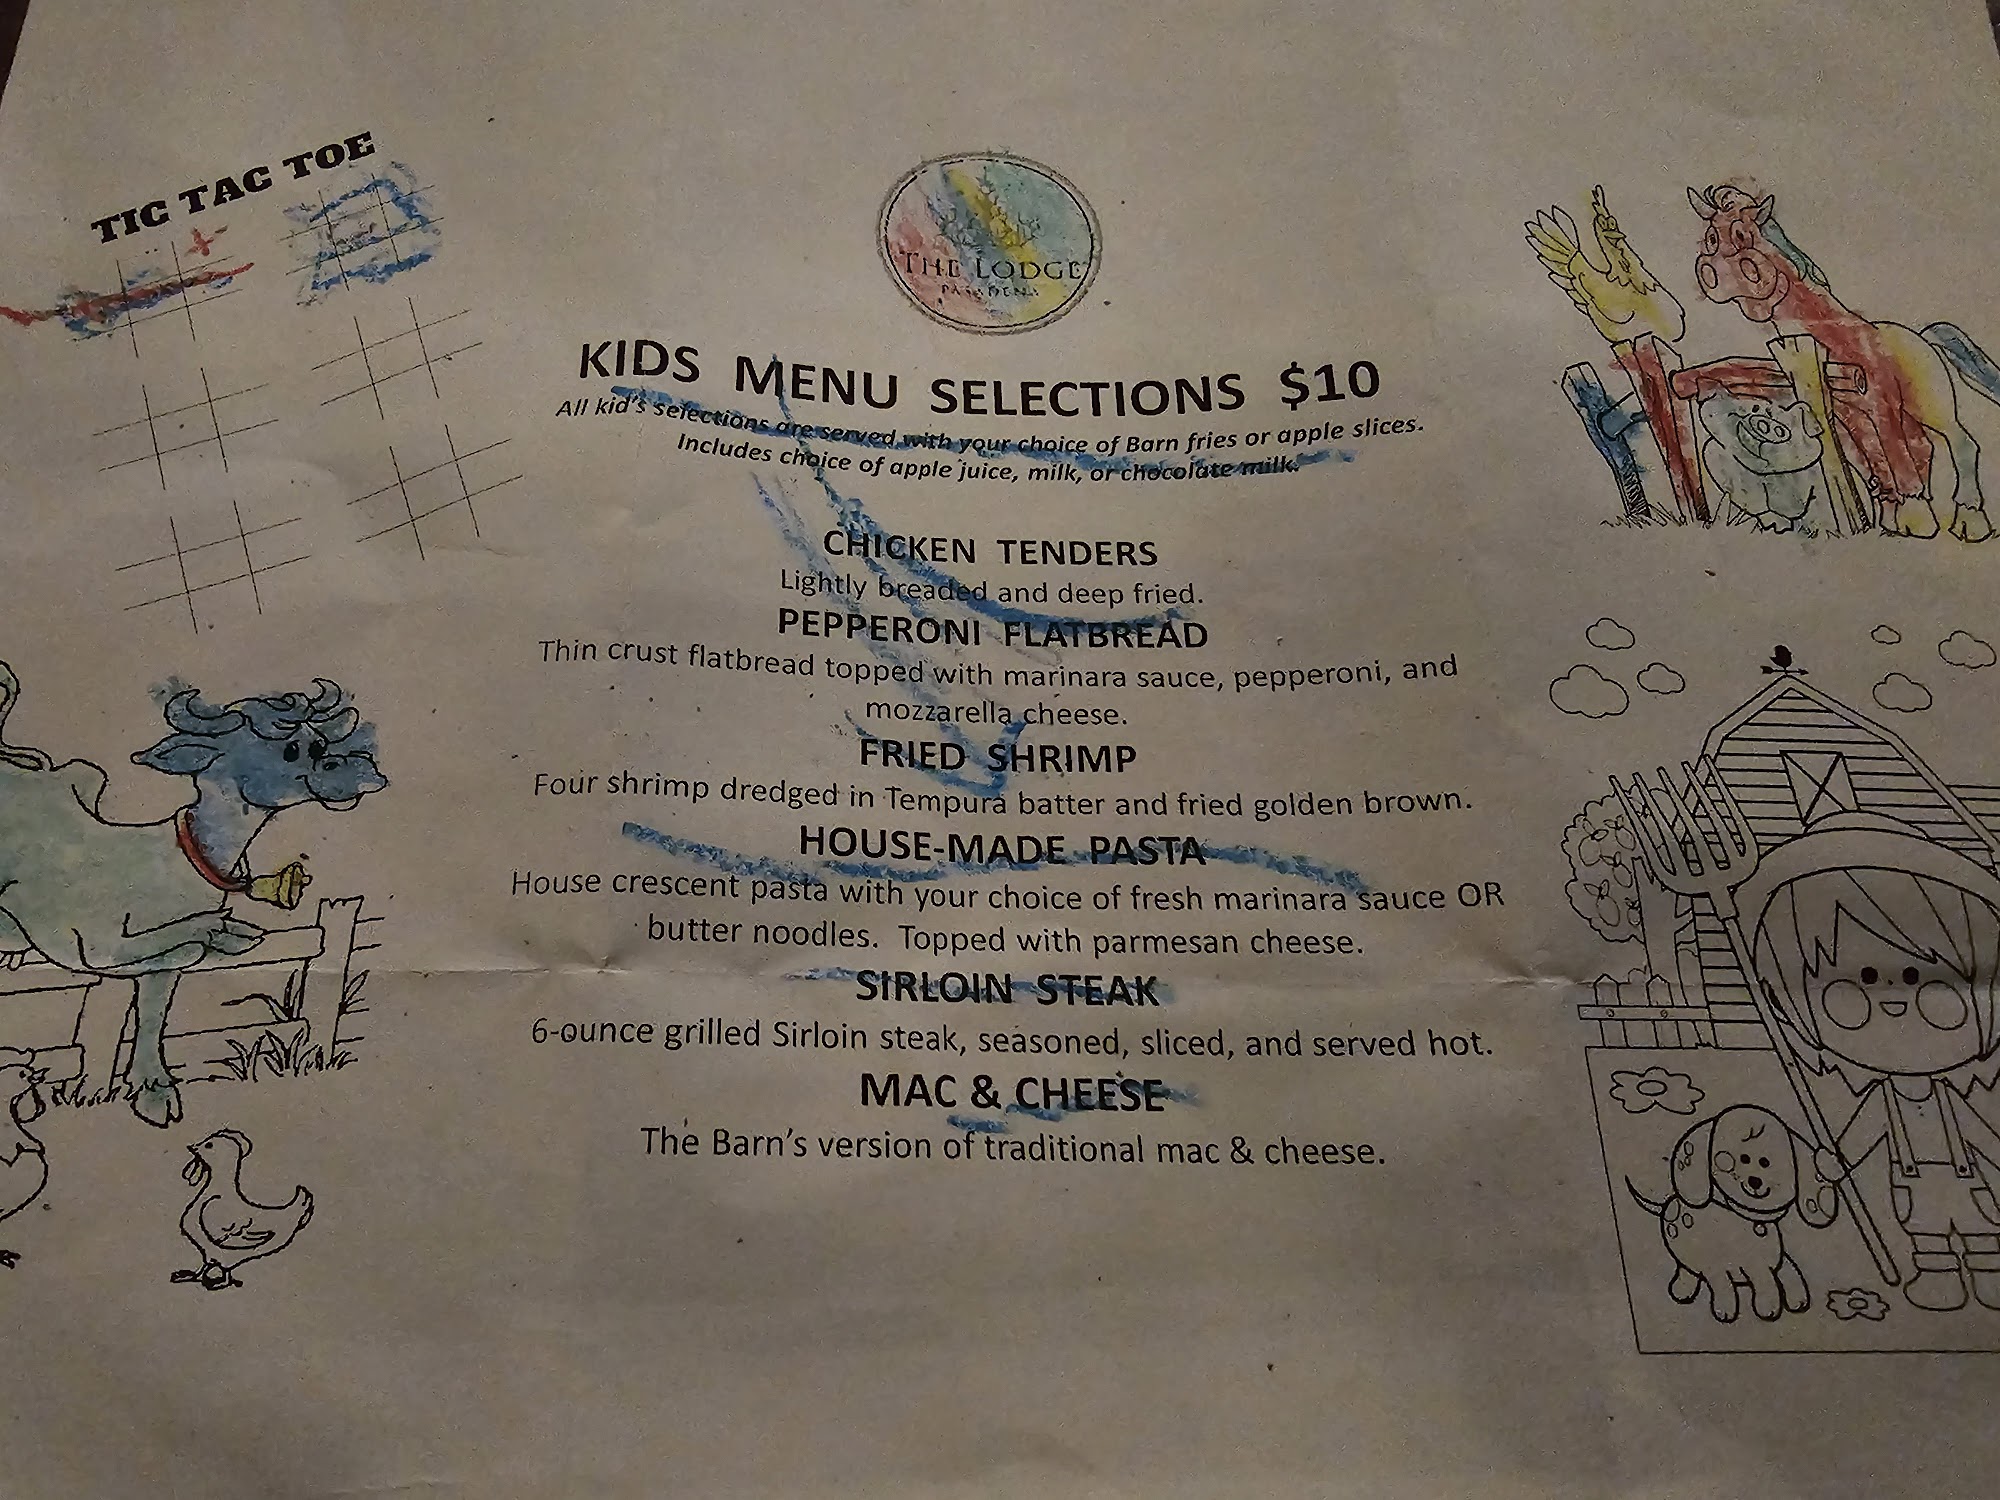 TIC TAC TOE
THE LODGE
KIDS MENU SELECTIONS $10
All kid's selections are served with your choice of Barn fries or apple slices.
Includes choice of apple juice, milk, or chocolate milk.
CHICKEN TENDERS
Lightly breaded and deep fried.
PEPPERONI FLATBREAD
Thin crust flatbread topped with marinara sauce, pepperoni, and
mozzarella cheese.
FRIED SHRIMP
Four shrimp dredged in Tempura batter and fried golden brown.
HOUSE-MADE PASTA
House crescent pasta with your choice of fresh marinara sauce OR
butter noodles. Topped with parmesan cheese.
SIRLOIN STEAK
6-ounce grilled Sirloin steak, seasoned, sliced, and served hot.
MAC & CHEESE
The Barn's version of traditional mac & cheese.